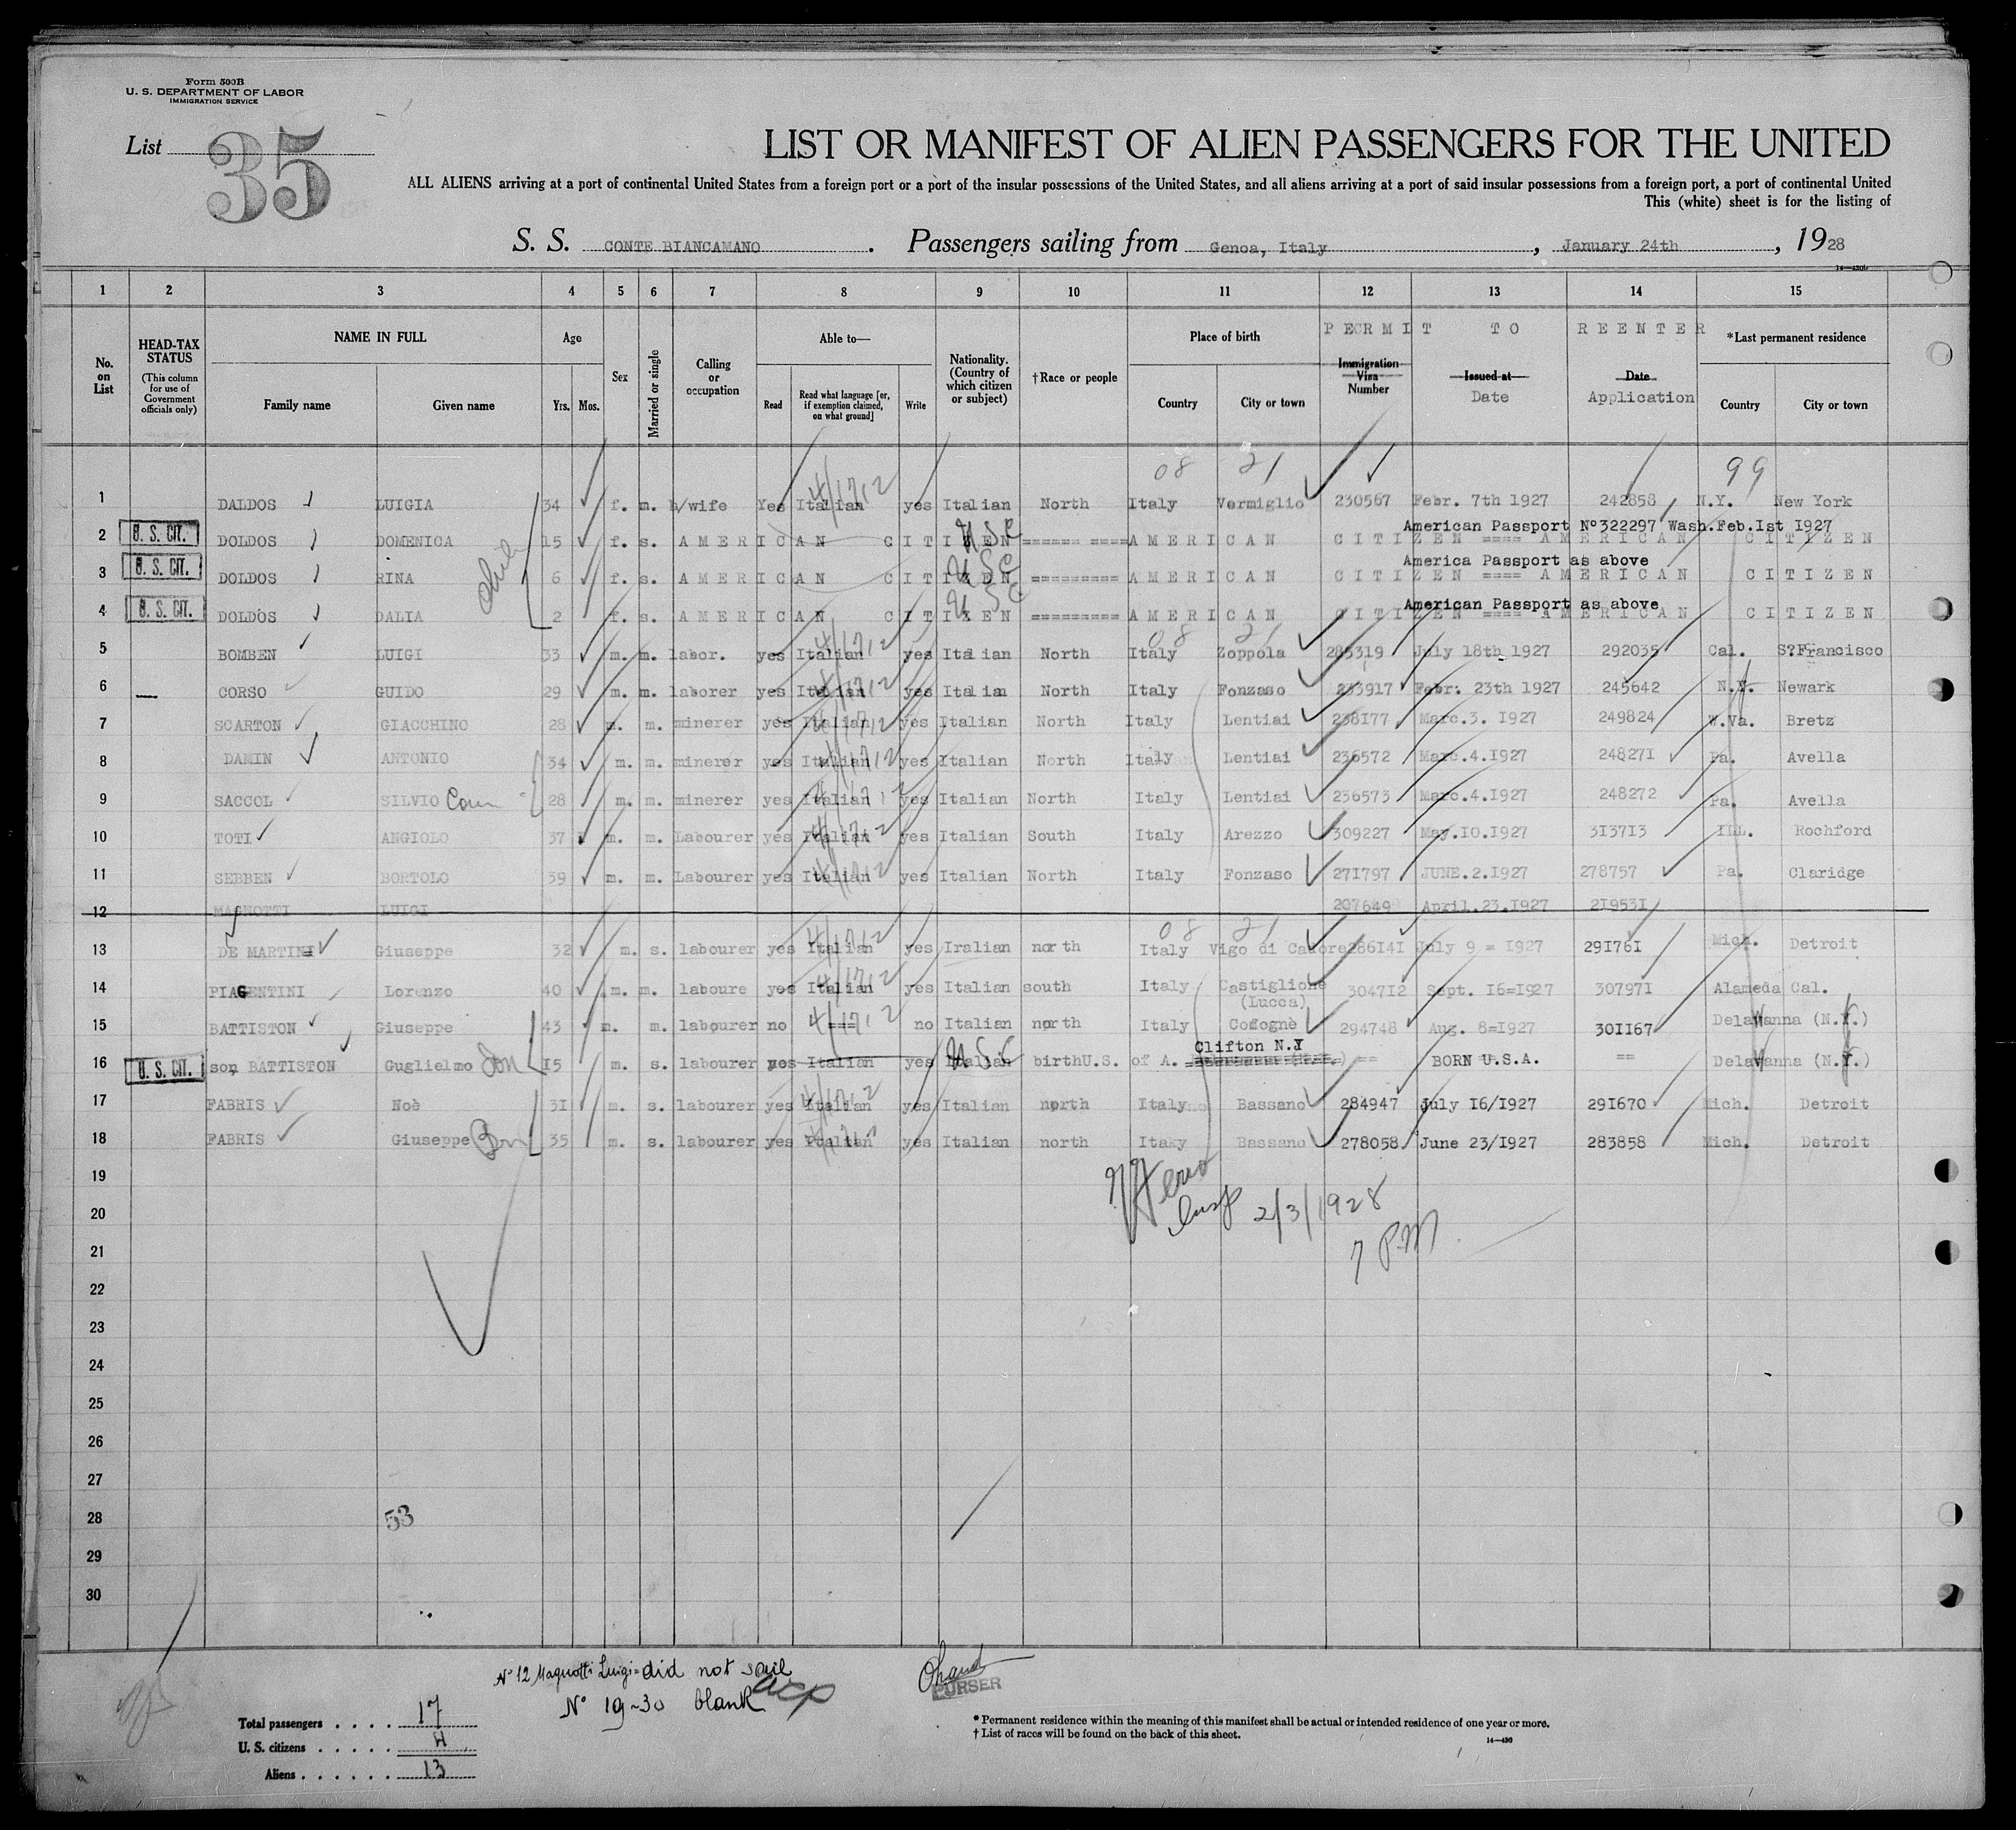 Form 500B
U. S. DEPARTMENT OF LABOR
IMMIGRATION SERVICE
List 35
LIST OR MANIFEST OF ALIEN PASSENGERS FOR THE UNITED
ALL ALIENS arriving at a port of continental United States from a foreign port or a port of the insular possessions of the United States, and all aliens arriving at a port of said insular possessions from a foreign port, a port of continental United
This (white) sheet is for the listing of
S. S. CONTE BIANCAMANO. Passengers sailing from Genoa, Italy, January 24th, 1928
1 2 3 4 5 6 7 8 9 10 11 12 13 14 15
No. on List
HEAD-TAX STATUS (This column for use of Government officials only)
NAME IN FULL Family name Given name
Age Yrs. Mos.
Sex
Married or single
Calling or occupation
Able to— Read Read what language [or, if exemption claimed, on what ground] Write
Nationality. (Country of which citizen or subject)
†Race or people
Place of birth Country City or town
PERMIT TO REENTER
Immigration Visa Number
Issued at Date
Date Application
*Last permanent residence Country City or town
08 21 99
1 DALDOS LUIGIA 34 f. m. h/wife Yes Italian 4/1712 yes Italian North Italy Vermiglio 230567 Febr. 7th 1927 242858 N.Y. New York
American Passport Nº322297 Wash.Feb.Ist I927
2 U. S. CIT. DOLDOS DOMENICA 15 f. s. AMERICAN CITIZEN USC ====== ==== AMERICAN CITIZEN ==== AMERICAN CITIZEN
America Passport as above
3 U. S. CIT. DOLDOS RINA 6 f. s. AMERICAN CITIZEN USC ========= AMERICAN CITIZEN ==== AMERICAN CITIZEN
American Passport as above
4 U. S. CIT. DOLDOS DALIA 2 f. s. AMERICAN CITIZEN USC ========= AMERICAN CITIZEN ==== AMERICAN CITIZEN
08 21
5 BOMBEN LUIGI 33 m. m. labor. yes Italian 4/1712 yes Italian North Italy Zoppola 285319 July 18th 1927 292035 Cal. S?Francisco
6 CORSO GUIDO 29 m. m. laborer yes Italian 4/1712 yes Italian North Italy Fonzaso 233917 Febr. 23th 1927 245642 Newark
7 SCARTON GIACCHINO 28 m. m. minerer yes Italian 4/1712 yes Italian North Italy Lentiai 238177 Marc.3. I927 249824 W.Va. Bretz
8 DAMIN ANTONIO 34 m. m. minerer yes Italian 4/1712 yes Italian North Italy Lentiai 236572 Marc.4.I927 24827I Pa. Avella
9 SACCOL SILVIO 28 m. m. minerer yes Italian 4/1712 yes Italian North Italy Lentiai 236573 Marc.4.I927 248272 Pa. Avella
10 TOTI ANGIOLO 37 m. m. Labourer yes Italian 4/1712 yes Italian South Italy Arezzo 309227 May.IO.I927 3I37I3 ILL. Rochford
11 SEBBEN BORTOLO 39 m. m. Labourer yes Italian 4/1712 yes Italian North Italy Fonzaso 27I797 JUNE.2.I927 278757 Pa. Claridge
12 MAGNOTTI LUIGI 207649 April.23.I927 2I953I
08 21
13 DE MARTINI Giuseppe 32 m. s. labourer yes Italian 4/1712 yes Iralian north Italy Vigo di Cadore 286I4I July 9 = I927 29I76I Mich. Detroit
14 PIAGENTINI Lorenzo 40 m. m. laboure yes Italian 4/1712 yes Italian south Italy Castiglione (Lucca) 3047I2 Sept. I6=I927 30797I Alameda Cal.
15 BATTISTON Giuseppe 43 m. m. labourer no === 4/1712 no Italian north Italy 294748 Aug. 8=I927 30II67 Delawanna
Clifton N.J
16 U. S. CIT. son BATTISTON Guglielmo Son I5 m. s. labourer yes Italian yes Italian USC birth U.S. of A. == BORN U.S.A. == Delawanna
17 FABRIS Noè 3I m. s. labourer yes Italian 4/1712 yes Italian north Italy Bassano 284947 July I6/I927 29I670 Mich. Detroit
18 FABRIS Giuseppe 35 m. s. labourer yes Italian yes Italian north Itaky Bassano 278058 June 23/I927 283858 Mich. Detroit
19
20 2/3/1928
21 7 PM
22
23
24
25
26
27
28 53
29
30
Nº 12 Magnotti Luigi = did not sail
Nº 19-30 blank
PURSER
Total passengers . . . . 17
U. S. citizens . . . . . 4
Aliens . . . . . . 13
* Permanent residence within the meaning of this manifest shall be actual or intended residence of one year or more.
† List of races will be found on the back of this sheet.
14—430